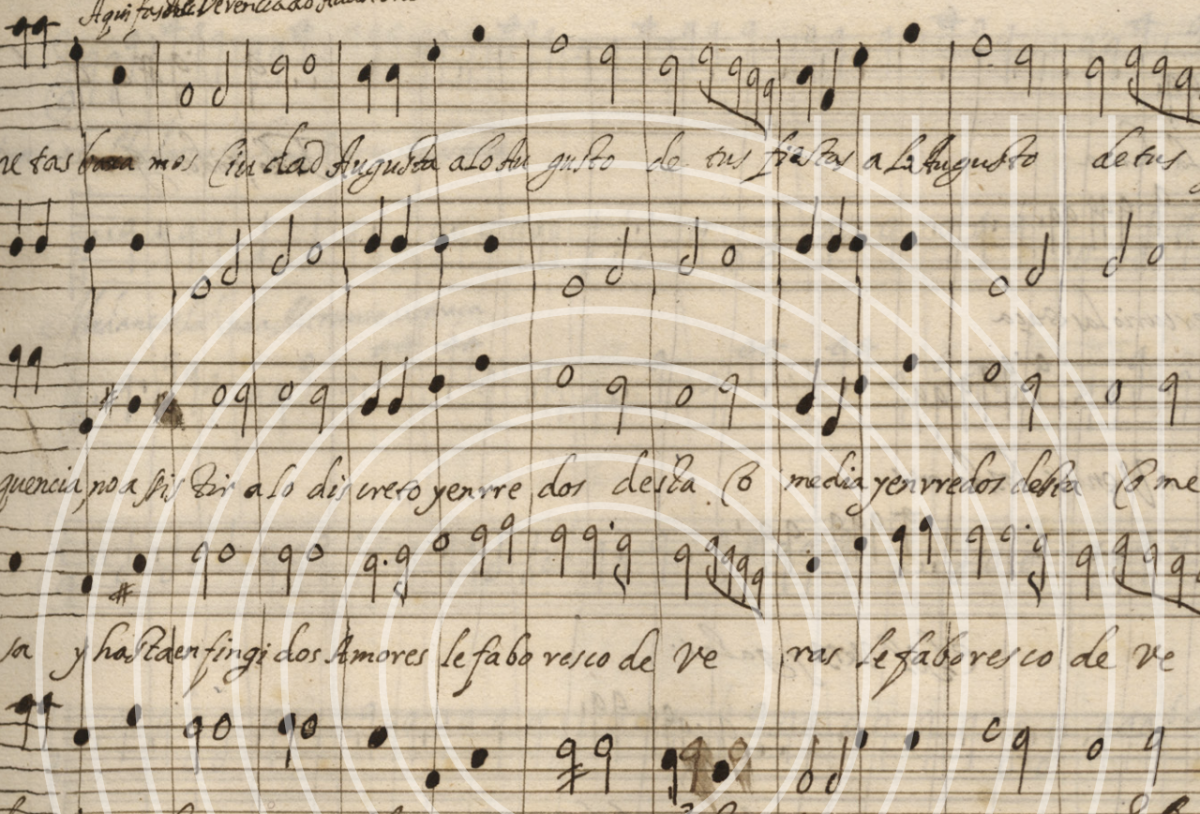 Aqui
mos Ciudad Augusta a lo Augusto de tus fiestas a lo Augusto de tus
quencia no asistir a lo discreto y enrredos desta Co media y enrredos desta Co me
sa y hasta en fingidos Amores le faboresco de ve ras le faboresco de ve